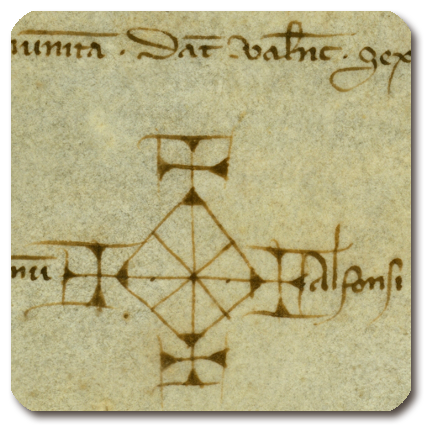 munita̅ · Dat̅ Valn̅c · sex
nu̅ Alfonsi